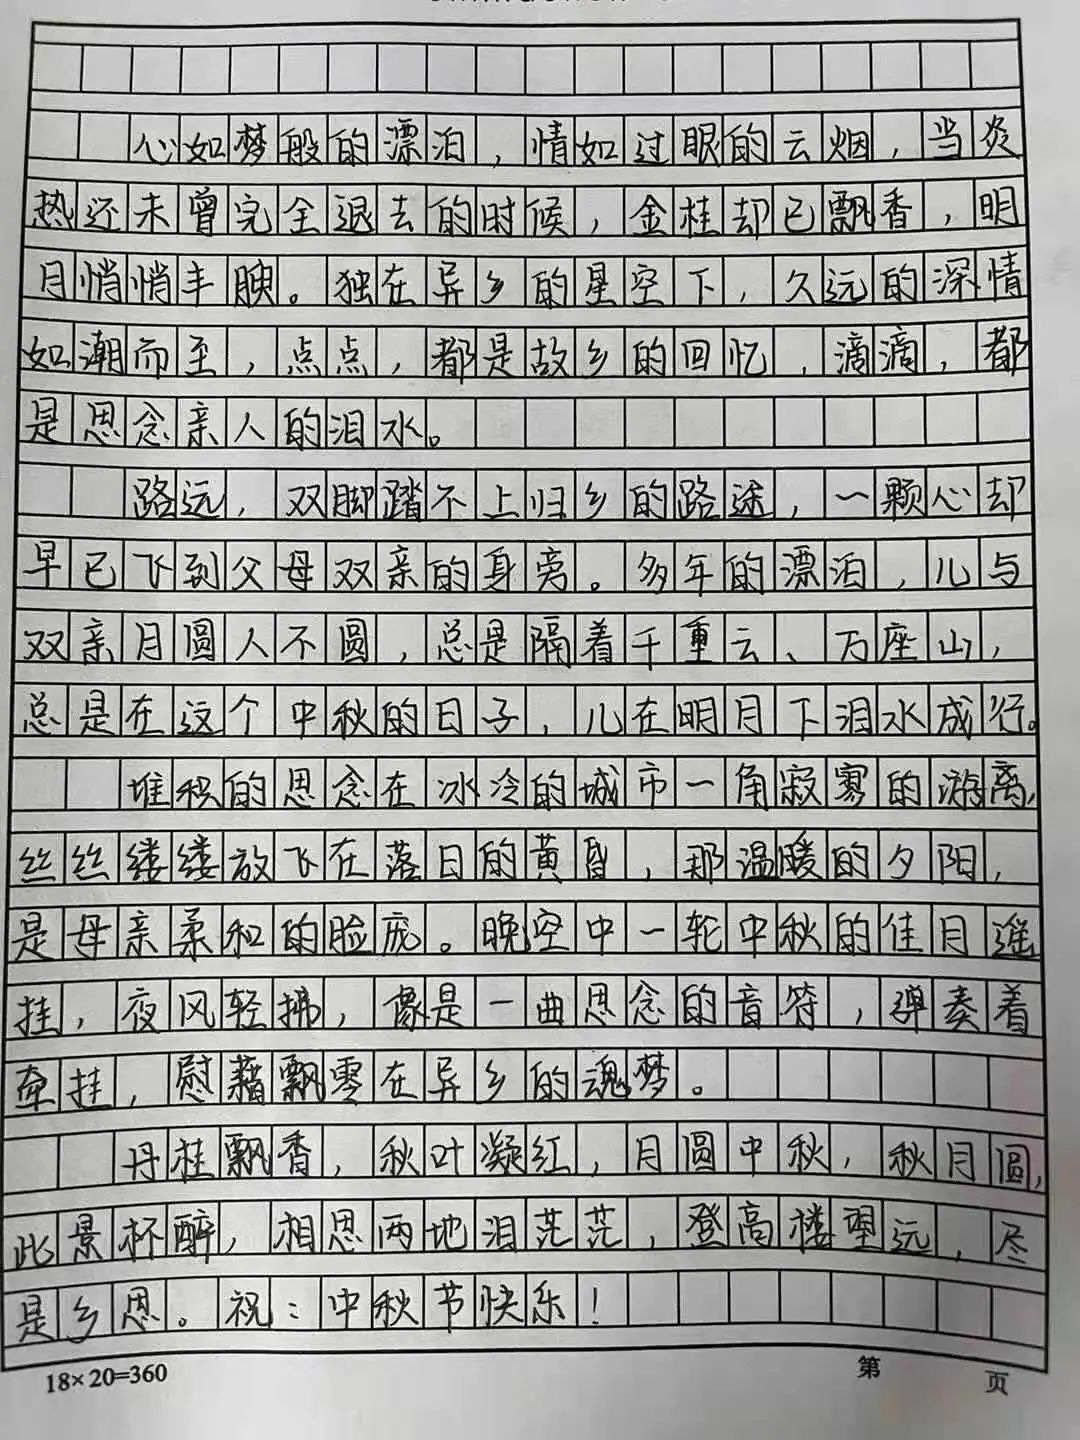 心如梦般的漂泊，情如过眼的云烟，当炎
热还未曾完全退去的时候，金桂却已飘香，明
月悄悄丰腴。独在异乡的星空下，久远的深情
如潮而至，点点，都是故乡的回忆，滴滴，都
是思念亲人的泪水。
路远，双脚踏不上归乡的路途，一颗心却
早已飞到父母双亲的身旁。多年的漂泊，儿与
双亲月圆人不圆，总是隔着千重云、万座山，
总是在这个中秋的日子，儿在明月下泪水成行。
堆积的思念在冰冷的城市一角寂寥的游离，
丝丝缕缕放飞在落日的黄昏，那温暖的夕阳，
是母亲柔和的脸庞。晚空中一轮中秋的佳月遥
挂，夜风轻拂，像是一曲思念的音符，弹奏着
牵挂，慰藉飘零在异乡的魂梦。
丹桂飘香，秋叶凝红，月圆中秋，秋月圆，
此景杯醉，相思两地泪茫茫，登高楼望远，尽
是乡思。祝：中秋节快乐！
18×20=360
第 页